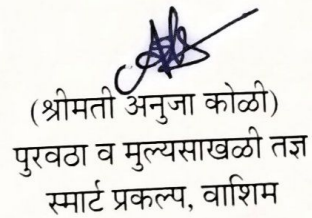 (श्रीमती अनुजा कोळी)
पुरवठा व मुल्यसाखळी तज्ञ
स्मार्ट प्रकल्प, वाशिम